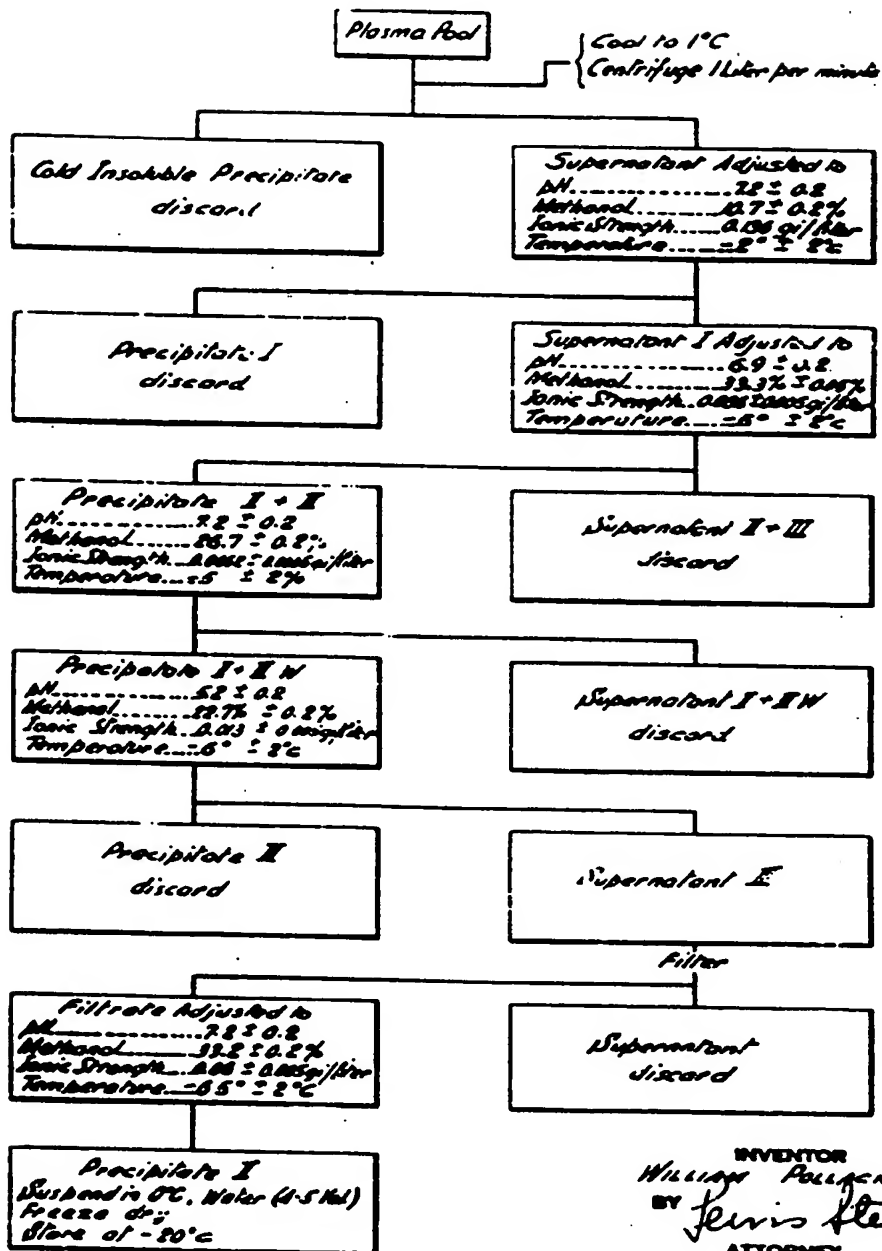 Plasma Pool
Cool to 1°C
Centrifuge 1 Liter per minute
Cold Insoluble Precipitate
discard
Supernatant Adjusted to
pH 7.2 ± 0.2
Methanol 10.7 ± 0.2%
Ionic Strength 0.136 gi/liter
Temperature -2° ± 2°c
Precipitate I
discard
Supernatant I Adjusted to
pH 6.9 ± 0.2
Methanol
Ionic Strength
Temperature -5° ± 2°c
Precipitate II + III
pH 7.2 ± 0.2
Methanol 26.7 ± 0.2%
Ionic Strength
Temperature -5 ± 2%
Supernatant II + III
discard
Precipatate II + III W
pH 5.2 ± 0.2
Methanol 22.7% ± 0.2%
Ionic Strength 0.013 ±
Temperature -6° ± 2°c
Supernatant II + III W
discard
Precipitate III
discard
Supernatant III
Filter
Filtrate Adjusted to
pH 7.2 ± 0.2
Methanol 33.2 ± 0.2%
Ionic Strength ± 0.005 gi/liter
Temperature -6.5° ± 2°C
Supernatant
discard
Precipitate II
Suspend in 0°C. Water (4-5 Vol)
Freeze dry
Store at -20°c
INVENTOR
WILLIAM POLLACK
BY
ATTORNEY